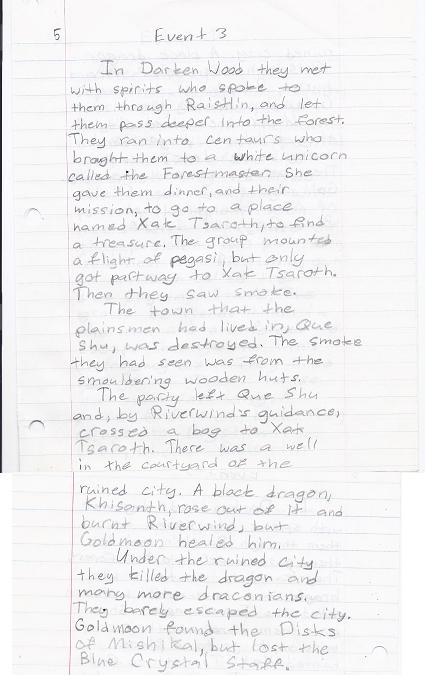 5 Event 3
In Darken Wood they met
with spirits who spoke to
them through Raistlin, and let
them pass deeper into the forest.
They ran into centaurs who
brought them to a white unicorn
called the Forestmaster. She
gave them dinner, and their
mission, to go to a place
named Xak Tsaroth, to find
a treasure. The group mounted
a flight of pegasi, but only
got partway to Xak Tsaroth.
Then they saw smoke.
The town that the
plainsmen had lived in, Que
Shu, was destroyed. The smoke
they had seen was from the
smouldering wooden huts.
The party left Que Shu
and, by Riverwind's guidance,
crossed a bog to Xak
Tsaroth. There was a well
in the courtyard of the
ruined city. A black dragon,
Khisanth, rose out of it and
burnt Riverwind, but
Goldmoon healed him.
Under the ruined city
they killed the dragon and
many more draconians.
They barely escaped the city.
Goldmoon found the Disks
of Mishikal, but lost the
Blue Crystal Staff.